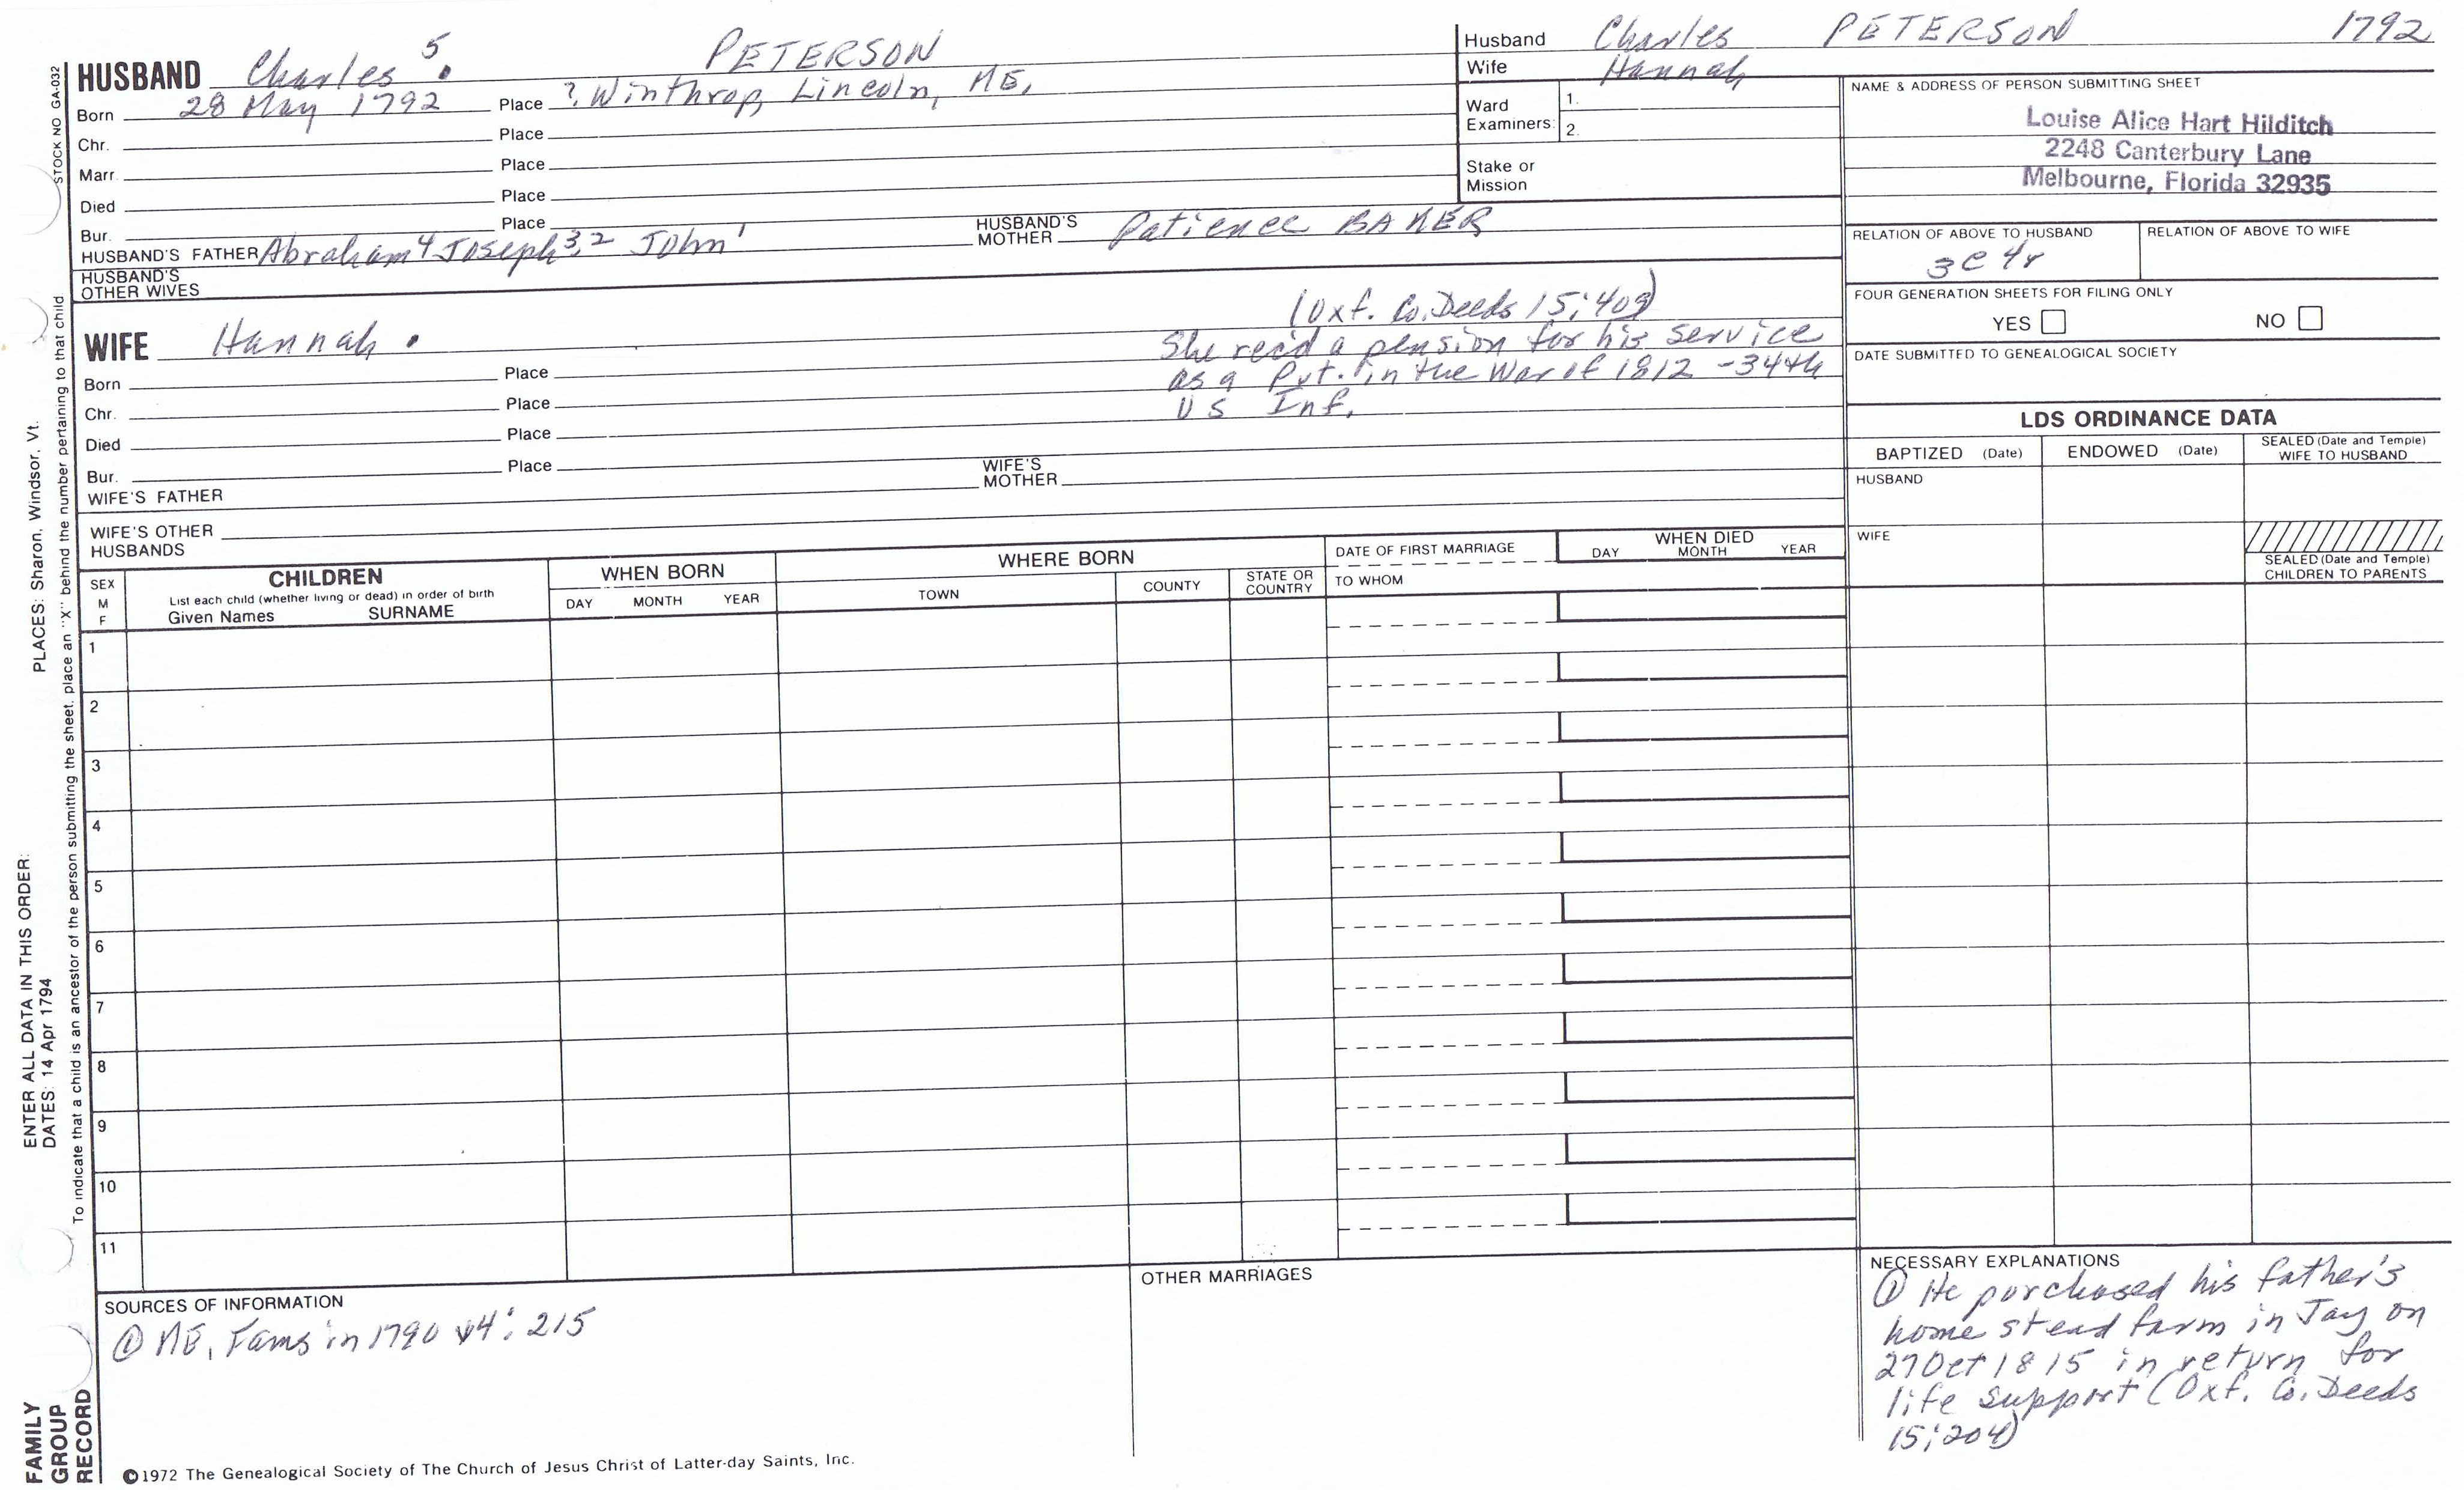 HUSBAND Charles 5. PETERSON
Born 28 May 1792 Place ? Winthrop, Lincoln, ME.
Chr. Place
Marr. Place
Died Place
Bur. Place
HUSBAND'S FATHER Abraham 4 Joseph 3,2 John 1 HUSBAND'S MOTHER Patience BAKER
HUSBAND'S OTHER WIVES
Husband Charles PETERSON 1792
Wife Hannah
Ward Examiners: 1.
2.
Stake or Mission
NAME & ADDRESS OF PERSON SUBMITTING SHEET
Louise Alice Hart Hilditch
2248 Canterbury Lane
Melbourne, Florida 32935
RELATION OF ABOVE TO HUSBAND
3C 4r
RELATION OF ABOVE TO WIFE
FOUR GENERATION SHEETS FOR FILING ONLY
YES NO
DATE SUBMITTED TO GENEALOGICAL SOCIETY
WIFE Hannah .
(Oxf. Co. Deeds 15:409)
She recd a pension for his service
as a Pvt. in the War of 1812 - 34th
US Inf.
Born Place
Chr. Place
Died Place
Bur. Place
WIFE'S FATHER WIFE'S MOTHER
WIFE'S OTHER HUSBANDS
LDS ORDINANCE DATA
BAPTIZED (Date) ENDOWED (Date) SEALED (Date and Temple) WIFE TO HUSBAND
HUSBAND
WIFE
SEALED (Date and Temple) CHILDREN TO PARENTS
SEX M F
CHILDREN
List each child (whether living or dead) in order of birth
Given Names SURNAME
WHEN BORN
DAY MONTH YEAR
WHERE BORN
TOWN COUNTY STATE OR COUNTRY
DATE OF FIRST MARRIAGE
TO WHOM
WHEN DIED
DAY MONTH YEAR
1
2
3
4
5
6
7
8
9
10
11
SOURCES OF INFORMATION
① ME, Fams in 1790 v4: 215
OTHER MARRIAGES
NECESSARY EXPLANATIONS
① He purchased his father's
home stead farm in Jay on
27 Oct 1815 in return for
life support (Oxf. Co. Deeds
15:204)
©1972 The Genealogical Society of The Church of Jesus Christ of Latter-day Saints, Inc.
STOCK NO GA-032
To indicate that a child is an ancestor of the person submitting the sheet, place an "X" behind the number pertaining to that child
ENTER ALL DATA IN THIS ORDER:
DATES: 14 Apr 1794
PLACES: Sharon, Windsor, Vt.
FAMILY
GROUP
RECORD